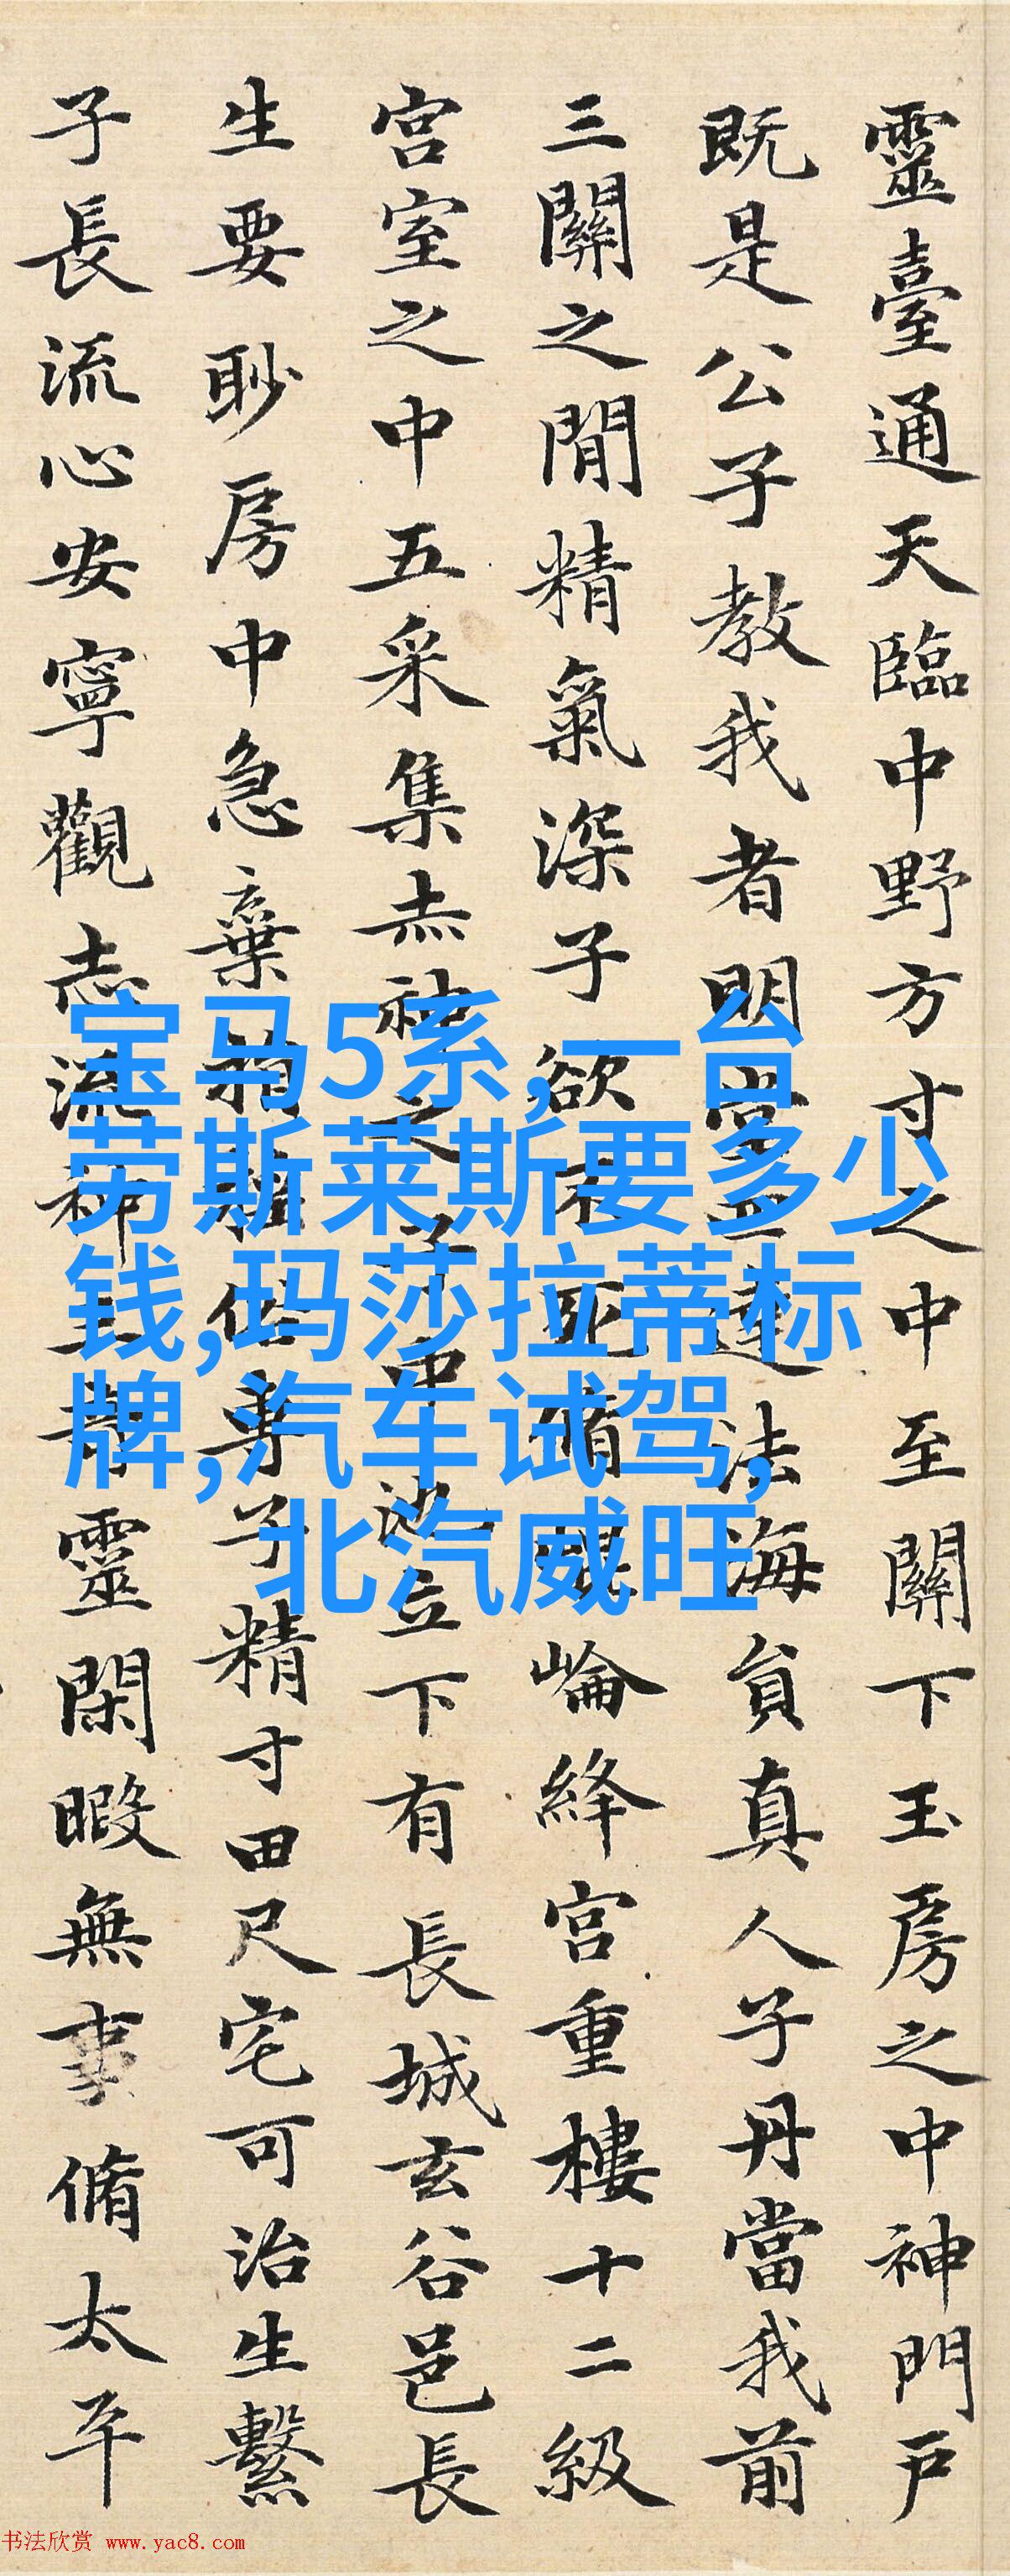 靈臺通天臨中野方寸之中至關下玉房之中神門戶
既是公子教我者明堂四達法海員真人子丹當我前
三關之閒精氣深子欲不死脩崐崘絳宮重樓十二級
宮室之中五采集赤神之子中池立下有長城玄谷邑長
生要眇房中急棄捐淫俗專子精寸田尺宅可治生繫
子長流心安寧觀志流神三奇靈閑暇無事脩太平
宝马5系,一台
劳斯莱斯要多少
钱,玛莎拉蒂标
牌,汽车试驾,
北汽威旺
书法欣赏 www.yac8.com